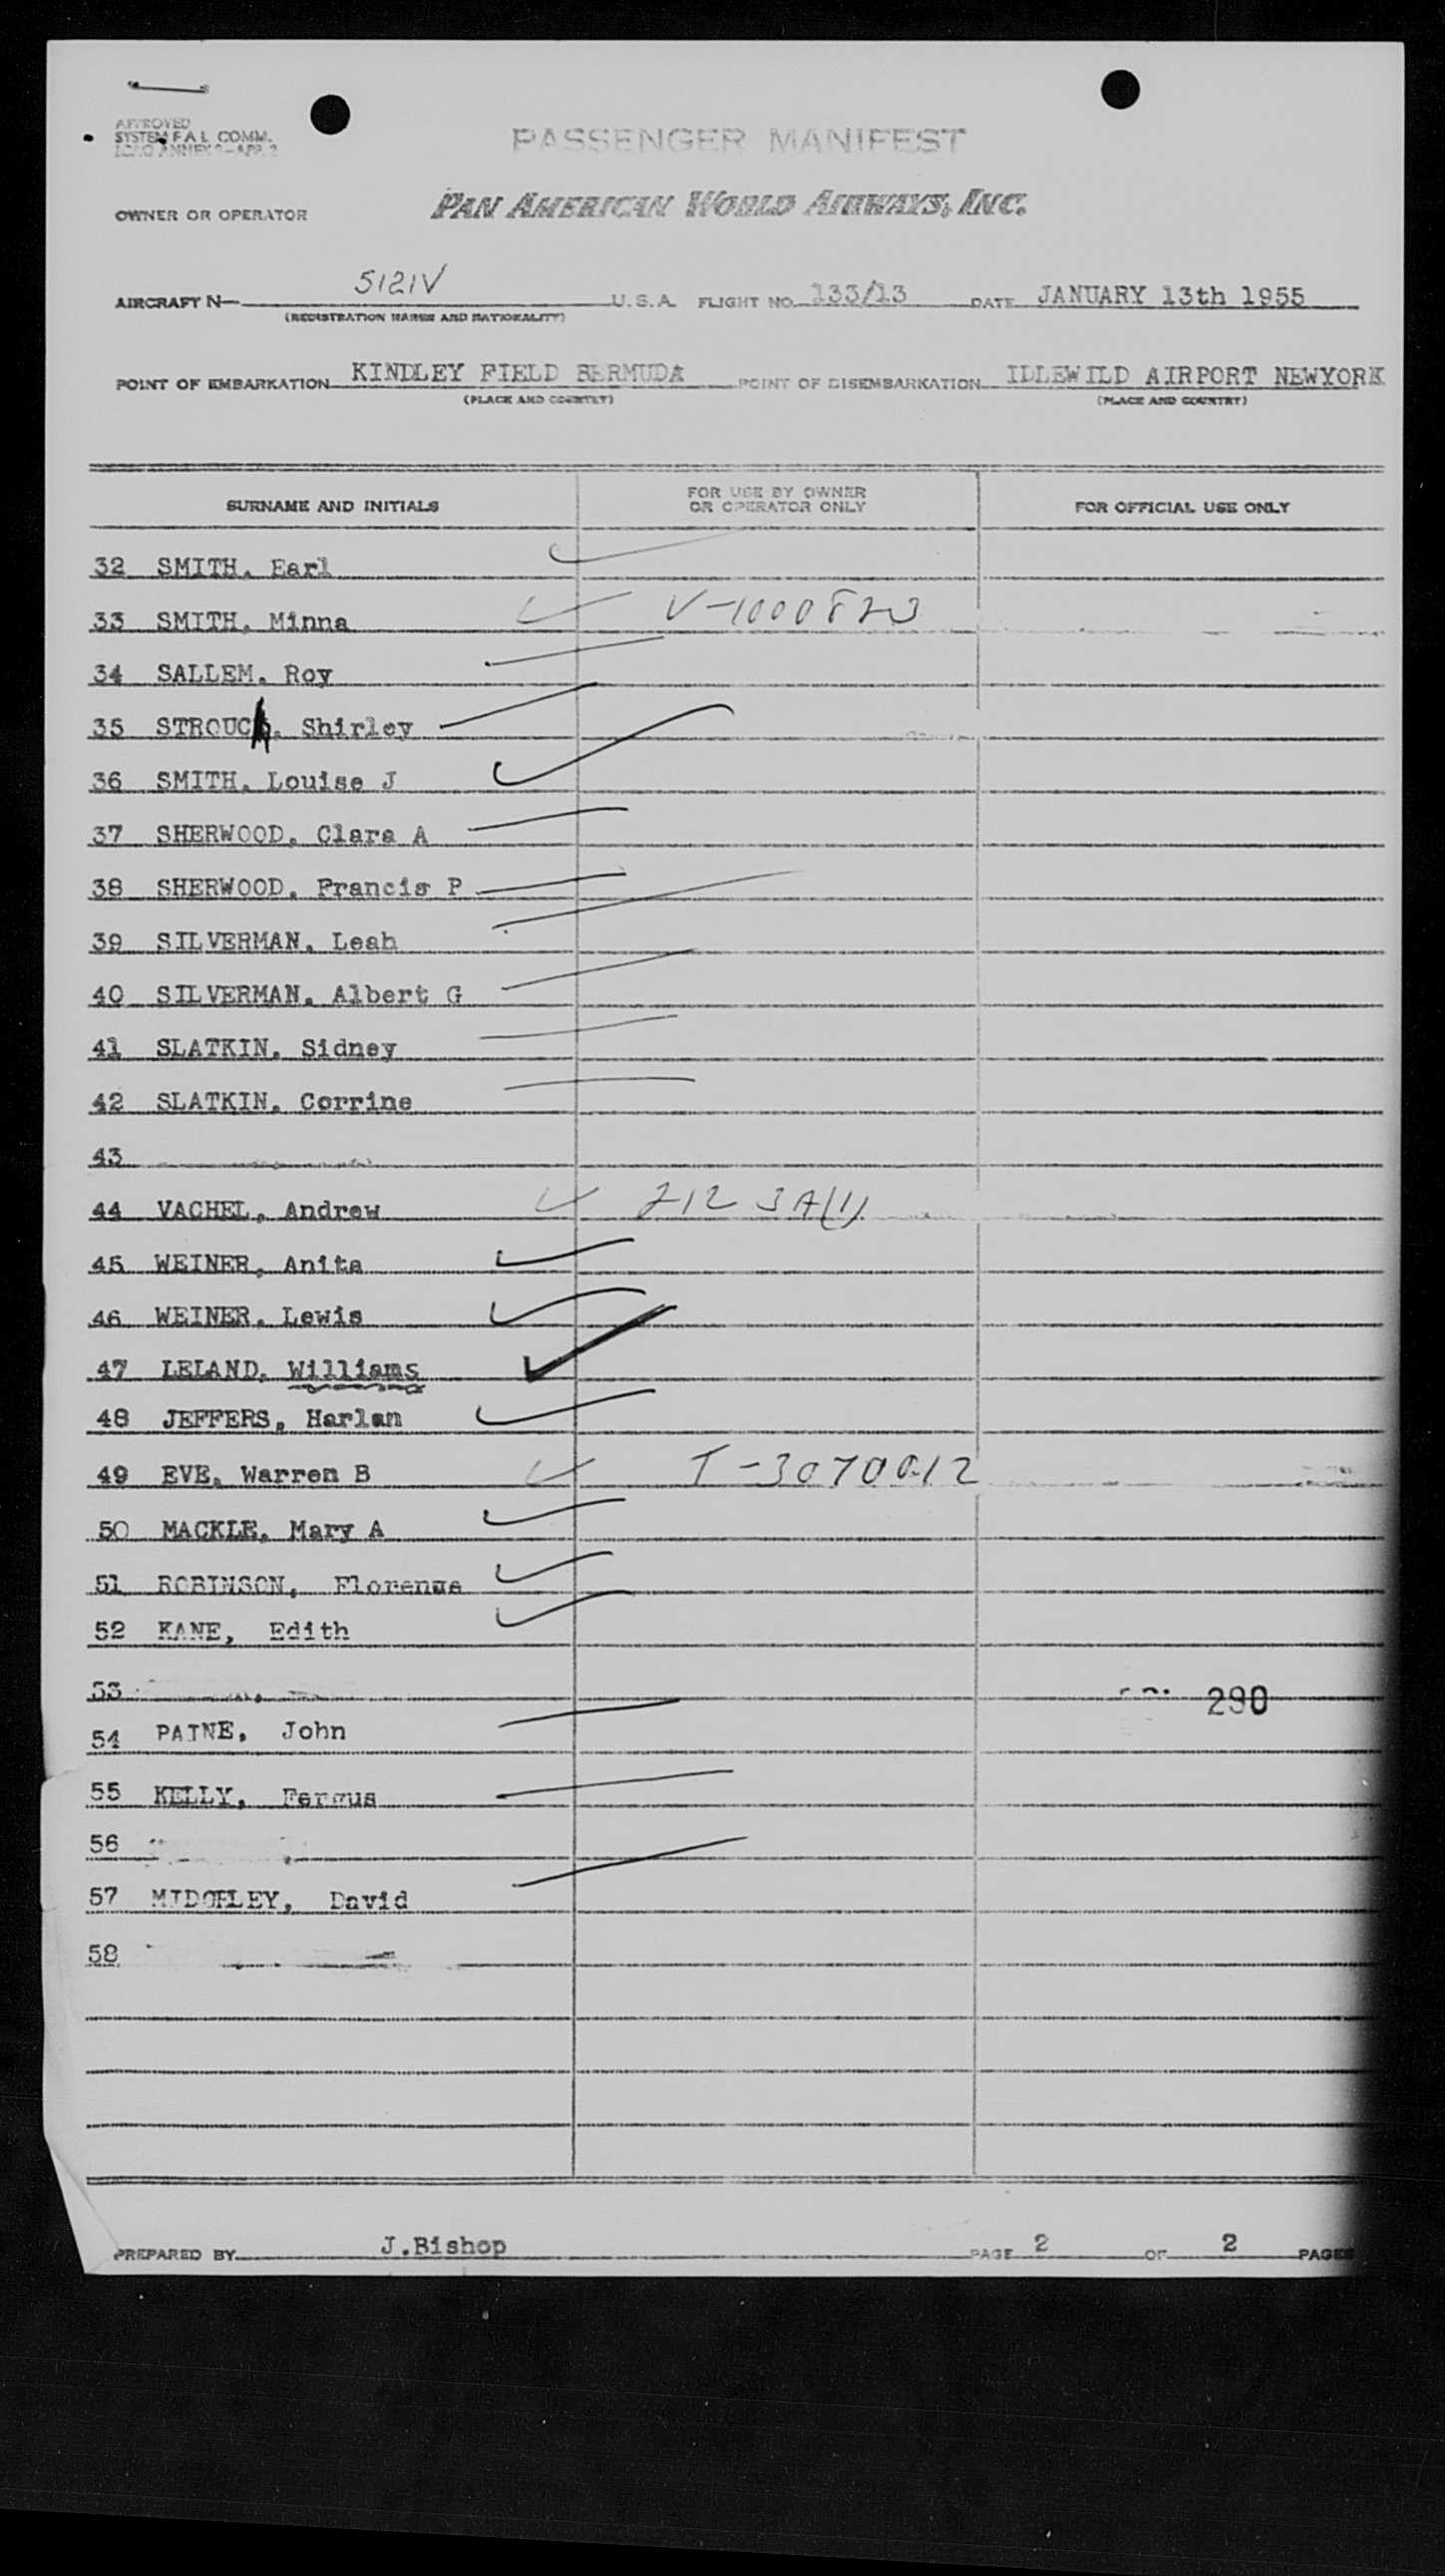 APPROVED
SYSTEM F A L COMM.
PASSENGER MANIFEST
OWNER OR OPERATOR PAN AMERICAN WORLD AIRWAYS, INC.
AIRCRAFT N— 5121V U.S.A. FLIGHT NO. 133/13 DATE JANUARY 13th 1955
(REGISTRATION MARKS AND NATIONALITY)
POINT OF EMBARKATION KINDLEY FIELD BERMUDA POINT OF DISEMBARKATION IDLEWILD AIRPORT NEWYORK
(PLACE AND COUNTRY) (PLACE AND COUNTRY)
SURNAME AND INITIALS FOR USE BY OWNER OR OPERATOR ONLY FOR OFFICIAL USE ONLY
32 SMITH, Earl
33 SMITH, Minna V-1000823
34 SALLEM, Roy
35 STROUCh, Shirley
36 SMITH, Louise J
37 SHERWOOD, Clara A
38 SHERWOOD, Francis P
39 SILVERMAN, Leah
40 SILVERMAN, Albert G
41 SLATKIN, Sidney
42 SLATKIN, Corrine
43
44 VACHEL, Andrew 212 3A(1)
45 WEINER, Anita
46 WEINER, Lewis
47 LELAND, Williams
48 JEFFERS, Harlan
49 EVE, Warren B T-3070012
50 MACKLE, Mary A
51 ROBINSON, Florence
52 KANE, Edith
53 290
54 PAINE, John
55 KELLY, Fergus
56
57 MIDGELEY, David
58
PREPARED BY J.Bishop PAGE 2 OF 2 PAGES